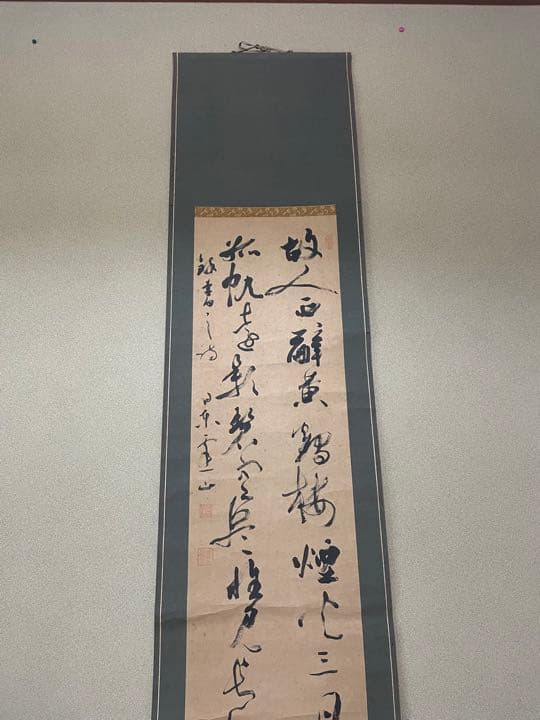 故人西辭黄鶴樓煙花三月
孤帆遠影碧空尽惟見長
録 之詩 日東 山